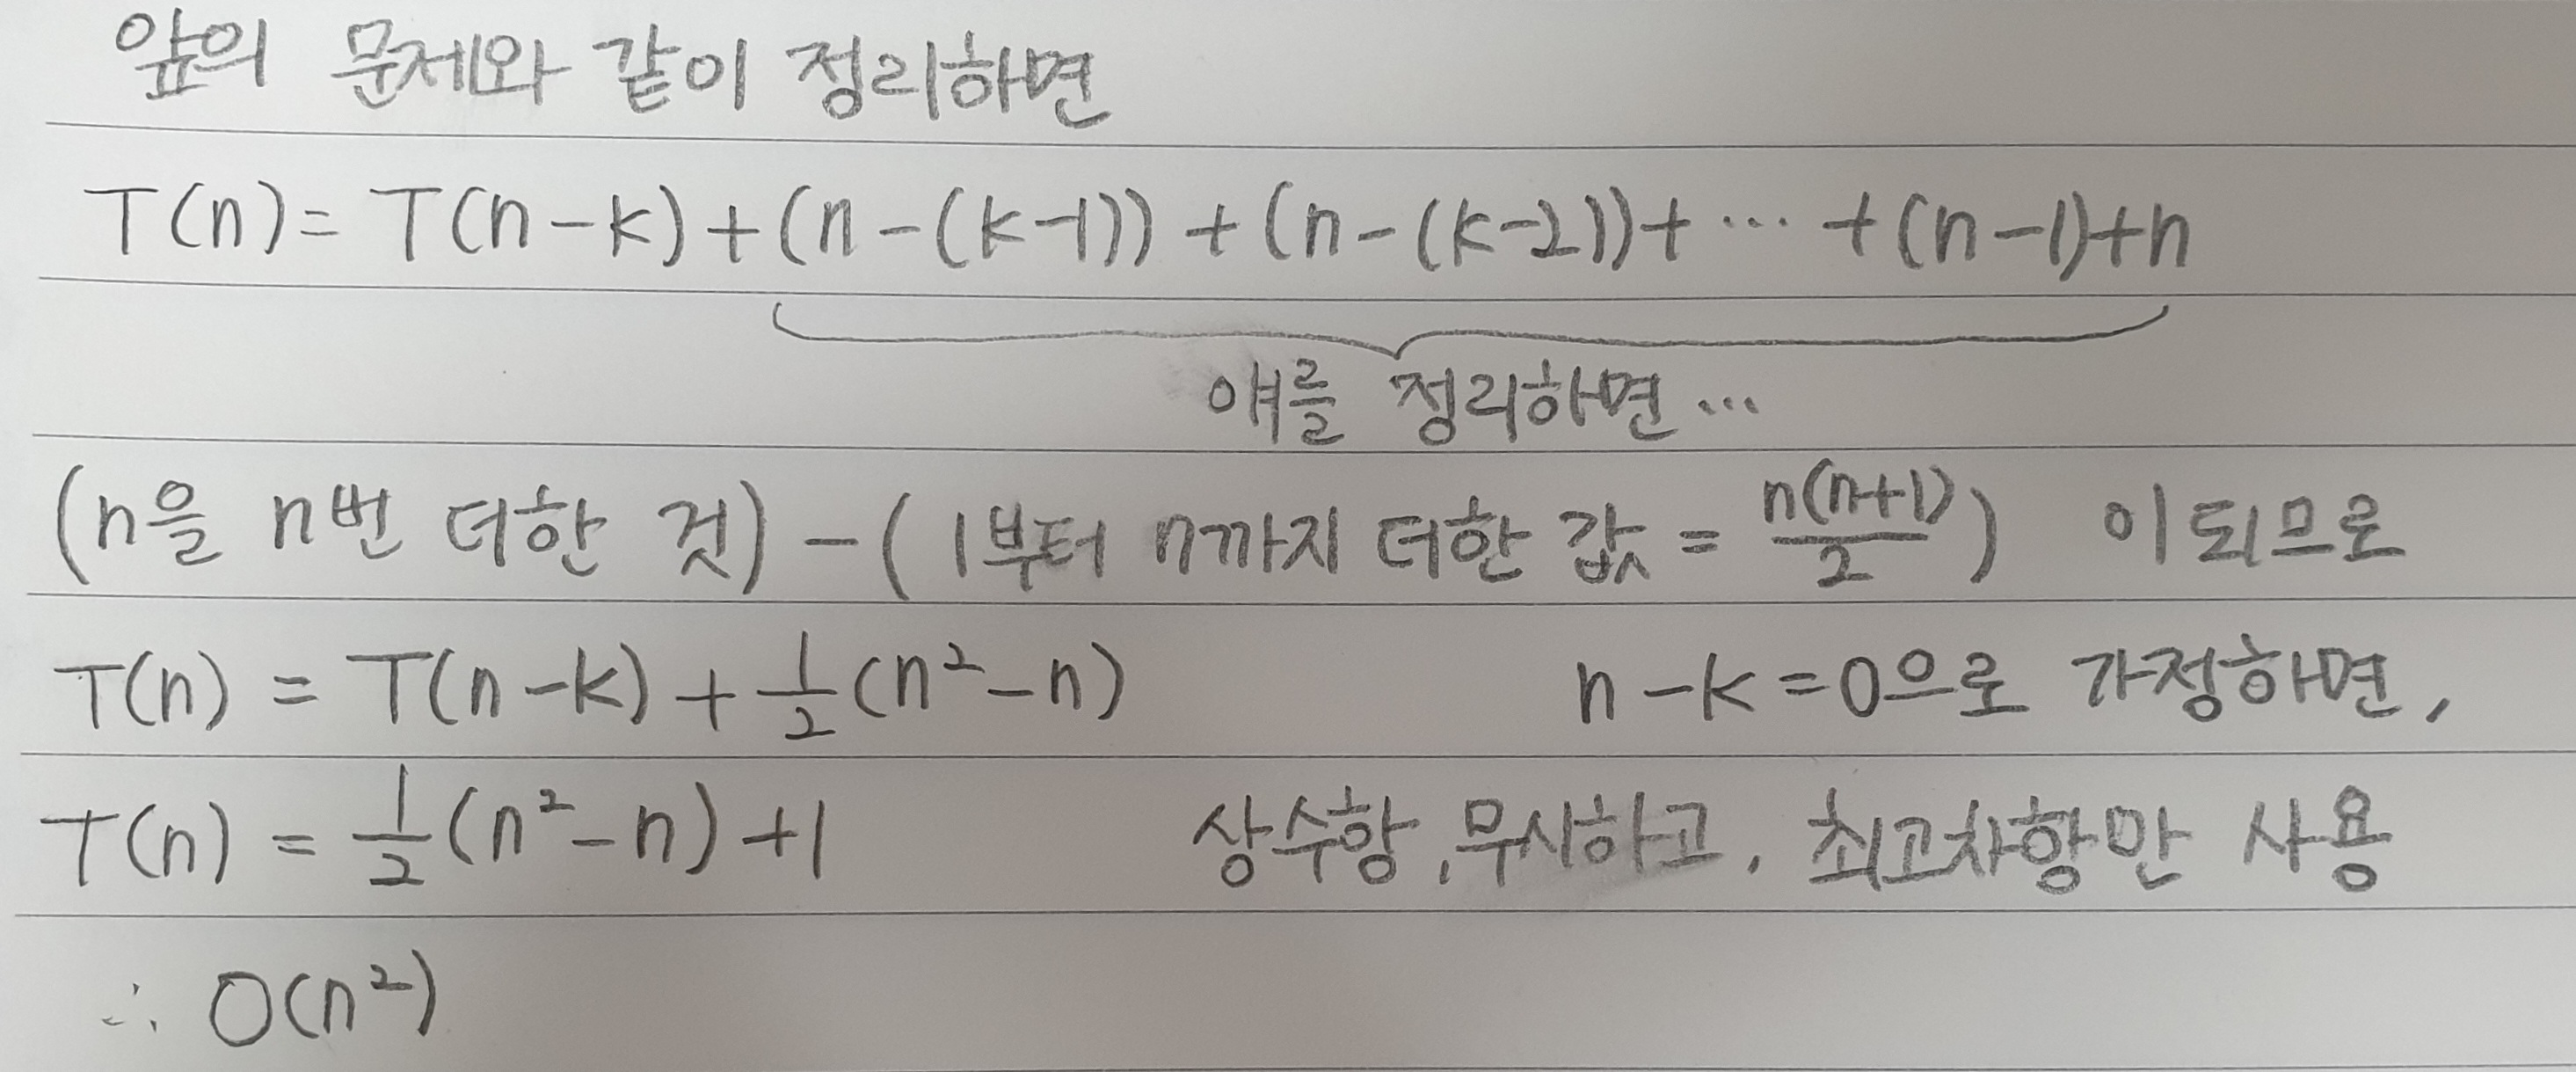 앞의 문제와 같이 정리하면
T(n) = T(n-k) + (n-(k-1)) + (n-(k-2)) + ⋯ + (n-1)+n
얘를 정리하면…
(n을 n번 더한 것) - (1부터 n까지 더한 값 = n(n+1)/2) 이 되므로
T(n) = T(n-k) + 1/2(n²-n) n-k=0으로 가정하면,
T(n) = 1/2(n²-n)+1 상수항, 무시하고, 최고차항만 사용
∴ O(n²)